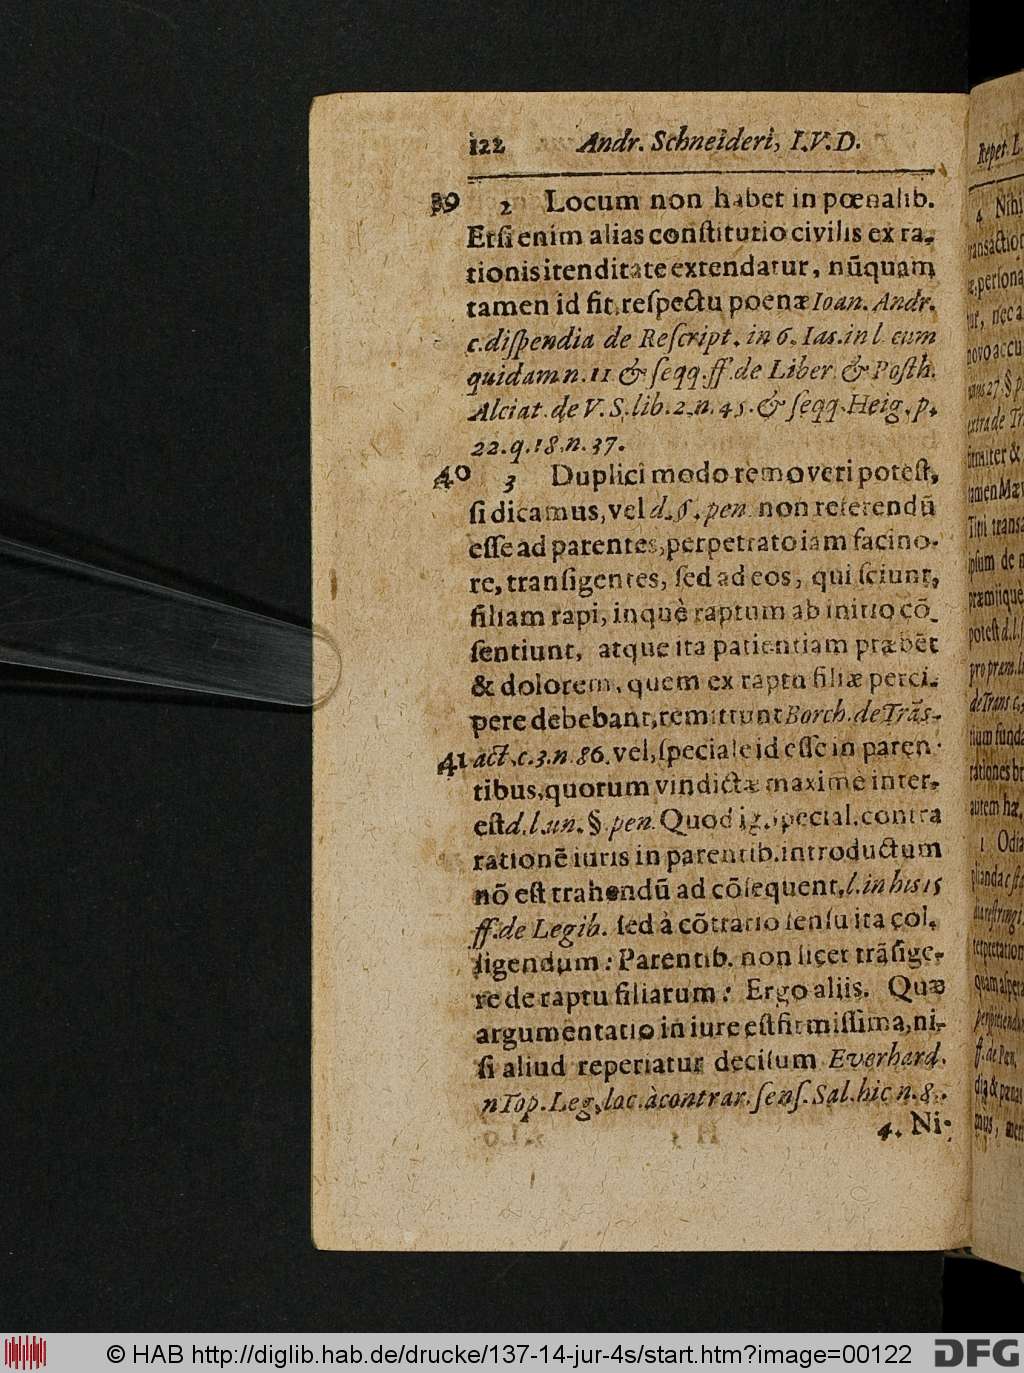 122 Andr. Schneideri, I.V.D.
39 2 Locum non habet in pœnalib.
Etsi enim alias constitutio civilis ex ra-
tionis itenditate extendatur, nũquam
tamen id fit, respectu poenæ Ioan. Andr.
c. dispendia de Rescript. in 6. Ias. in l. cum
quidam n. 11 & seqq. ff. de Liber. & Posth.
Alciat. de V. S. lib. 2. n. 45. & seqq. Heig. p.
22. q. 18. n. 37.
40 3 Duplici modo removeri potest,
si dicamus, vel d. §. pen. non referendũ
esse ad parentes, perpetrato iam facino-
re, transigentes, sed ad eos, qui sciunt,
filiam rapi, inquè raptum ab initio cõ-
sentiunt, atque ita patientiam præbẽt
& dolorem, quem ex raptu filiæ perci-
pere debebant, remittunt Borch. de Trãs-
41 act. c. 3. n. 86. vel, speciale id esse in paren-
tibus, quorum vindictæ maximè inter-
est d. l. un. § pen. Quod ig. special. contra
rationẽ iuris in parentib. introductum
nõ est trahendũ ad cõsequent, l. in his 15
ff. de Legib. sed à cõtrario sensu ita col-
ligendum: Parentib. non licet trãsige-
re de raptu filiarum: Ergo aliis. Quæ
argumentatio in iure est firmissima, ni-
si aliud reperiatur decisum Everhard.
n Top. Leg. loc. à contrar. sens. Sal. hic n. 8.
4. Ni-
Repet. L.
4 Nihi
transactio
persona
nec a
novo accu
27. § p
extra de Tr
tamen
Titii transa
ipsum de
potest d. l.
de Trans c. 3
tium funda
rationes br
autem hæ,
1 Odia
ff. de Pen.
© HAB http://diglib.hab.de/drucke/137-14-jur-4s/start.htm?image=00122
DFG